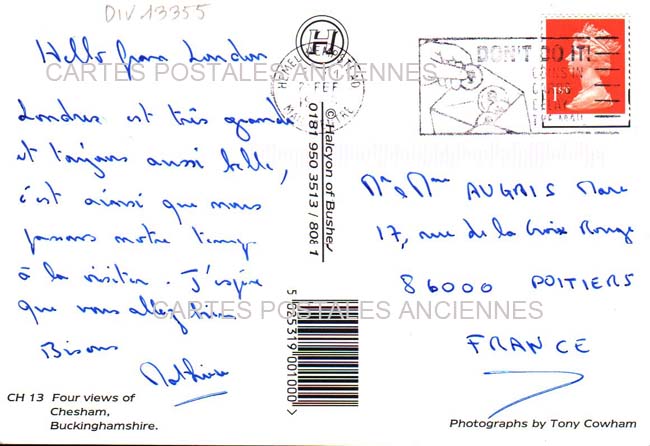 DIV 13355
Hello from London
Londres est très grande
et toujours aussi belle,
c'est ainsi que nous
passons notre temps
à la visiter. J'espère
que vous allez bien.
Bisous
CH 13 Four views of
Chesham,
Buckinghamshire.
H
© Halcyon of Bushey
0181 950 3513 / 80E 1
5 025319 001000
HEMEL HEMPSTEAD
FEB
DON'T DO IT!
COINS IN
DELAY
THE MAIL
1ST
Mr & Mme AUGAIS Marc
17, rue de la Croix Rouge
86000 POITIERS
FRANCE
Photographs by Tony Cowham
CARTES POSTALES ANCIENNES
CARTES POSTALES ANCIENNES